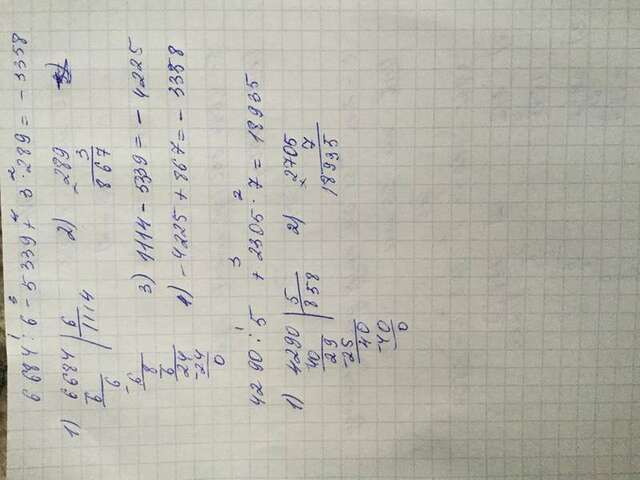 6684 : 6 - 5339 + 3 · 289 = - 3358
1) 6684 | 6
6 1114
6
- 6
8
6
24
- 24
0
2) 289
× 3
867
3) 1114 - 5339 = - 4225
4) - 4225 + 867 = - 3358
4290 : 5 + 2305 · 7 = 18935
1) 4290 | 5
40 858
29
- 25
40
- 40
0
2) 2705
× 7
18935